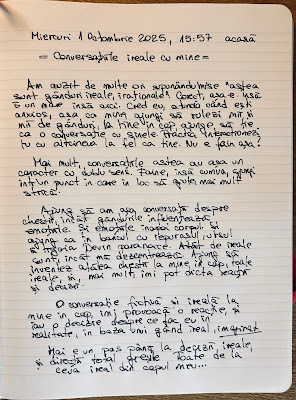 Miercuri 1 Octombrie 2025, 15:57 acasă
= Conversațiile ireale cu mine =
Am auzit de multe ori spunându-mi-se "astea
sunt gânduri ireale, iraționale". Corect, așa e însă
E un mare însă aici. Cred eu, atunci când ești
anxios, așa ca mine, ajungi să rulezi mii și
mii de gânduri, la tine în cap ajungi să fie
ca o conversație cu sinele tractic. Interacționezi
tu cu altcineva la fel ca tine. Nu e fain așa?
Mai mult, conversațiile astea au așa un
caracter cu dublu sens. Faine, însă cumva, ajungi
într-un punct în care în loc să ajute, mai mult
strică.
Ajung să am așa conversații despre
chestii, încât gândurile influențează
emoțiile. Și emoțiile inundă corpul. Și
ajung ca în bancul cu iepurașul, ursul
și tigaia. Devin paranoice. Atât de ireale
sunt, încât mă dezcentrează. Ajung să
inventez atâtea chestii la mine în cap, toate
ireale, și, mai mult, îmi pot dicta reacții
și decizii.
O conversație fictivă și ireală la
mine în cap, îmi provoacă o reacție, și
iau o decizie despre ce fac eu în
realitate, în baza unui gând ireal, imaginat.
Mai e un pas până la decizii ireale,
și direcții total greșite. Toate de la
ceva ireal din capul meu...